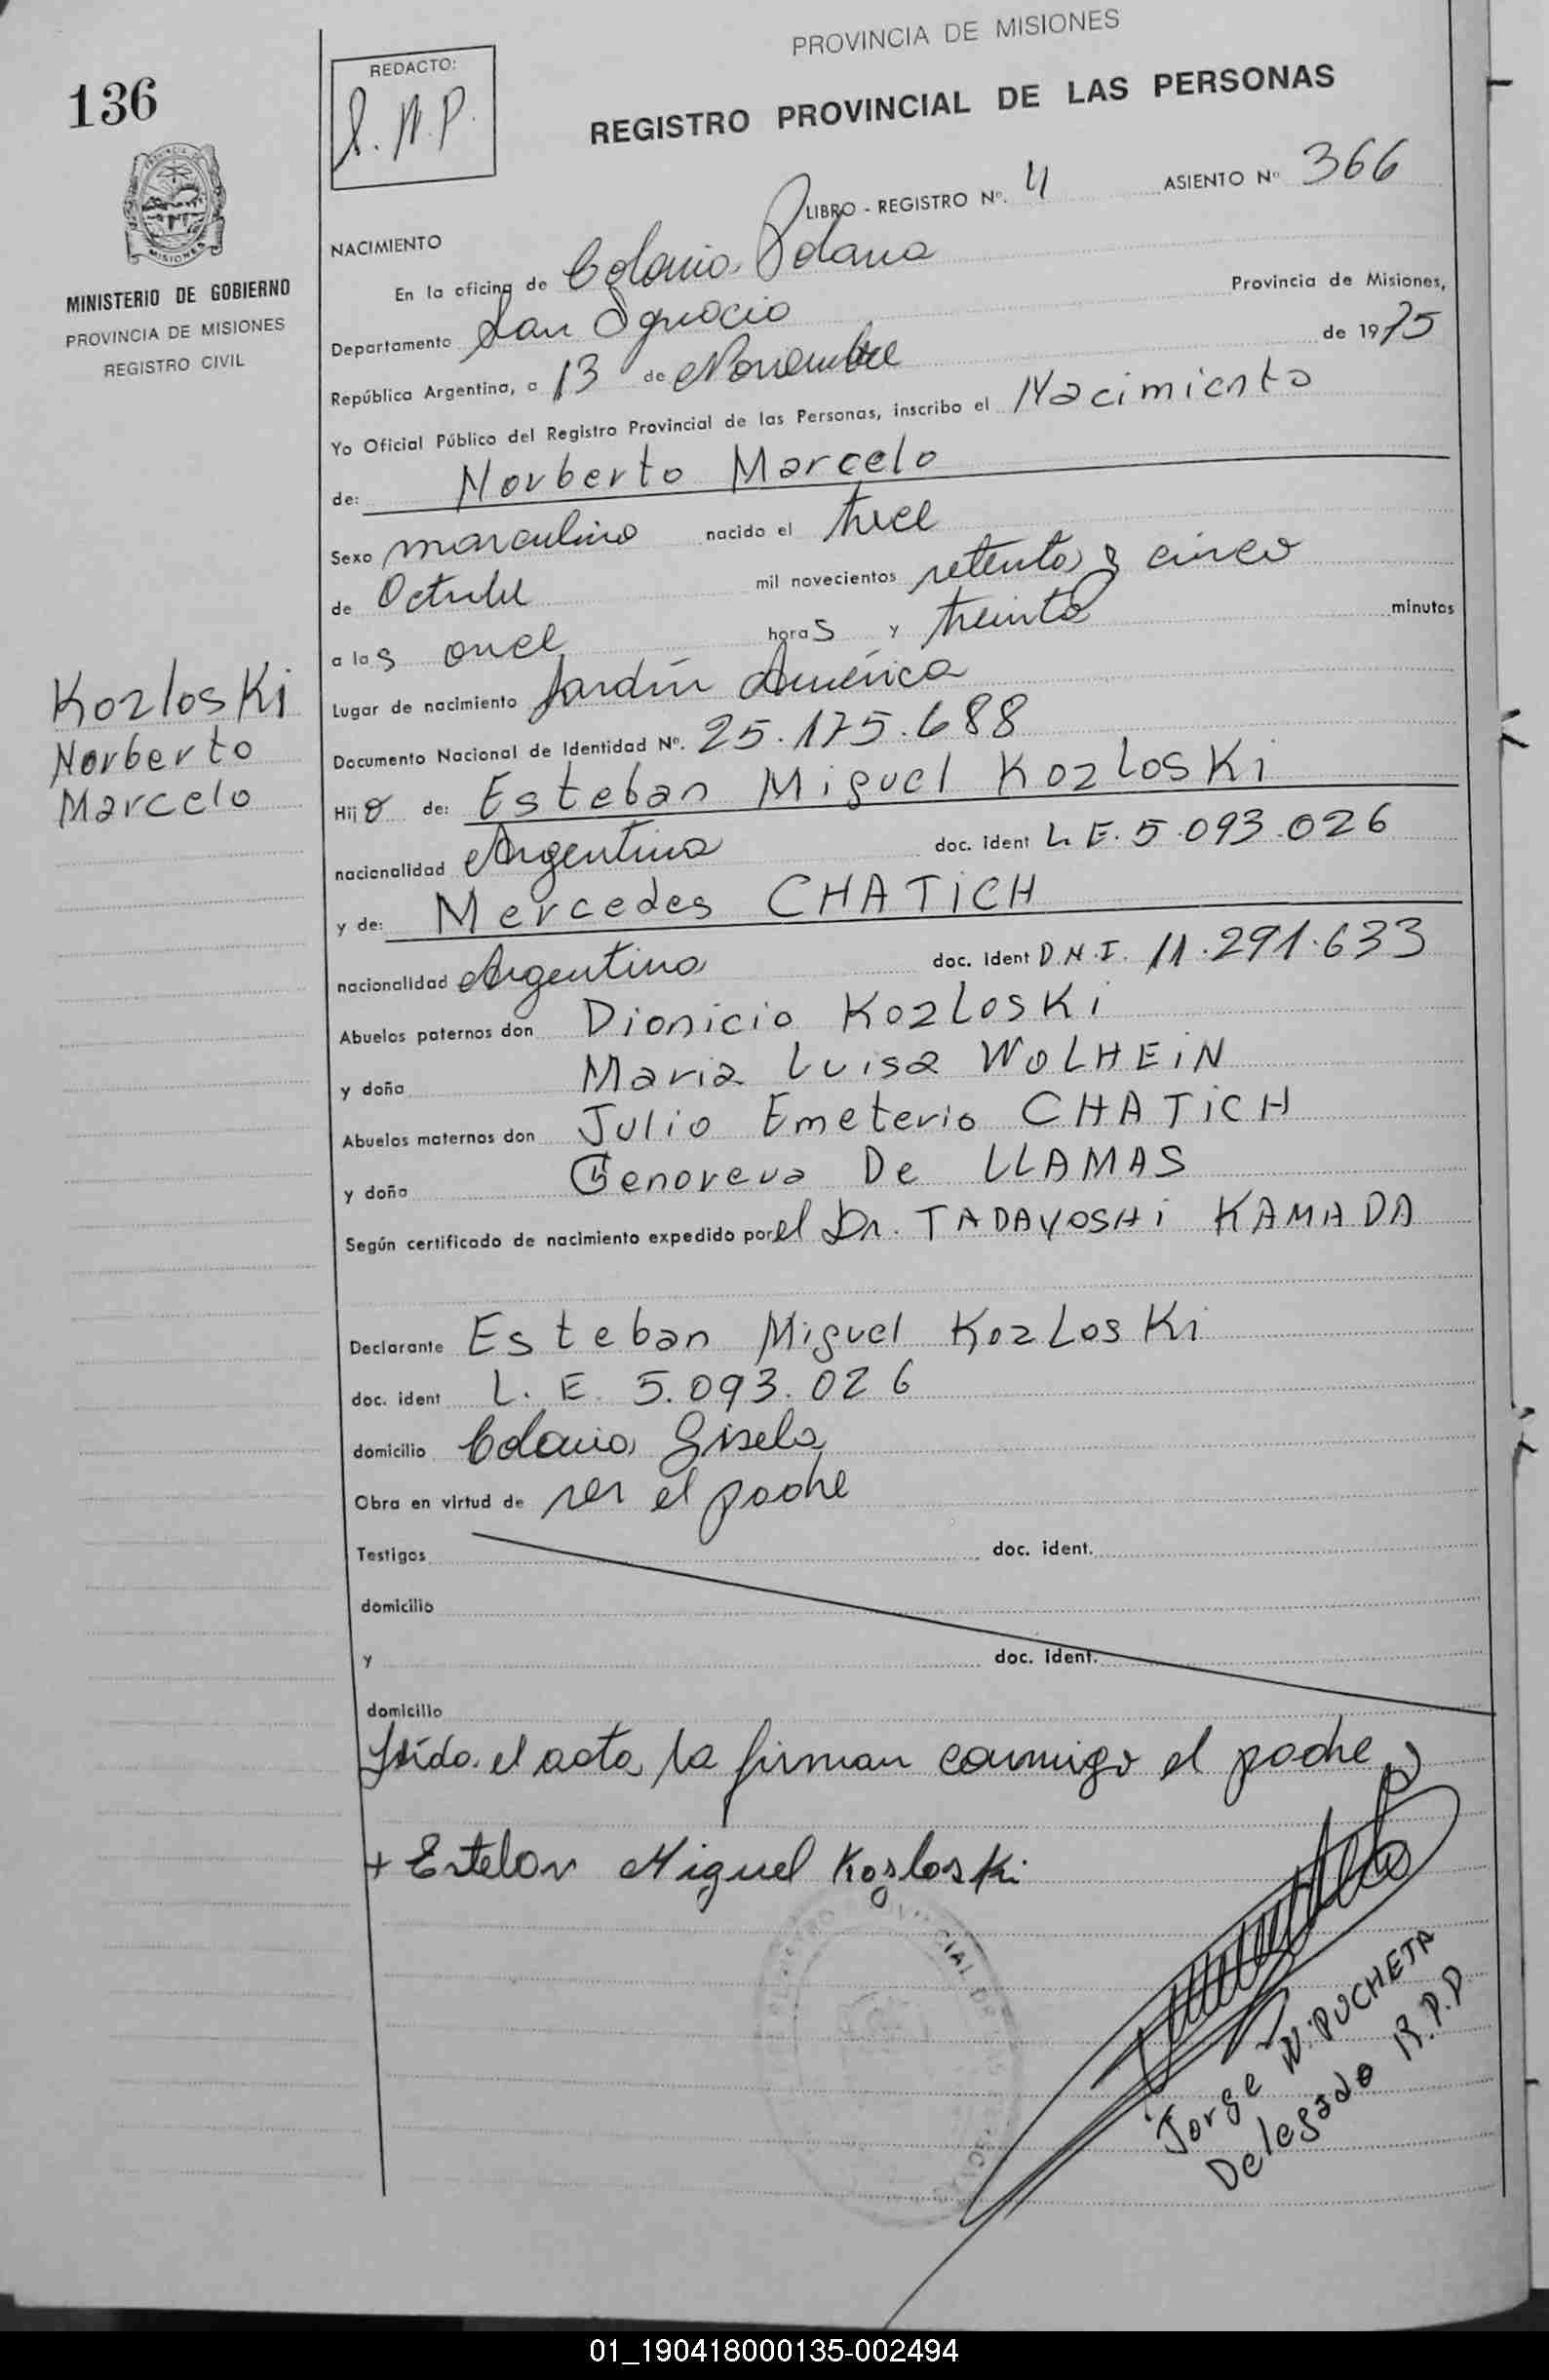 136
PROVINCIA DE MISIONES
REGISTRO CIVIL
MINISTERIO DE GOBIERNO
PROVINCIA DE MISIONES
REGISTRO CIVIL
Kozloski
Norberto
Marcelo
REDACTO:
PROVINCIA DE MISIONES
REGISTRO PROVINCIAL DE LAS PERSONAS
LIBRO - REGISTRO Nº. 4 ASIENTO Nº 366
NACIMIENTO
En la oficina de Colonia Polana
Departamento San Ignacio Provincia de Misiones,
República Argentina, a 13 de Noviembre de 1975
Yo Oficial Público del Registro Provincial de las Personas, inscribo el Nacimiento
de: Norberto Marcelo
Sexo masculino nacido el trece
de Octubre mil novecientos setenta y cinco
a las once horas y treinta minutos
Lugar de nacimiento Jardín América
Documento Nacional de Identidad Nº. 25.175.688
Hijo de: Esteban Miguel KozLosKi
nacionalidad Argentina doc. ident L.E. 5.093.026
y de: Mercedes CHATiCH
nacionalidad Argentina doc. ident D.N.I. 11.291.633
Abuelos paternos don Dionicio KozLosKi
y doña Maria Luisa WOLHEiN
Abuelos maternos don Julio Emeterio CHATiCH
y doña Genoveva De LLAMAS
Según certificado de nacimiento expedido por el Dr. TADAYOSHi KAMADA
Declarante Esteban Miguel KozLosKi
doc. ident L. E. 5.093.026
domicilio Colonia Gisela
Obra en virtud de ser el padre
Testigos doc. ident.
domicilio
y doc. ident.
domicilio
Leída el acta, la firman conmigo el padre
+ Esteban Miguel Kozloski
Jorge N. PUCHETA
Delegado R.P.P
01_190418000135-002494